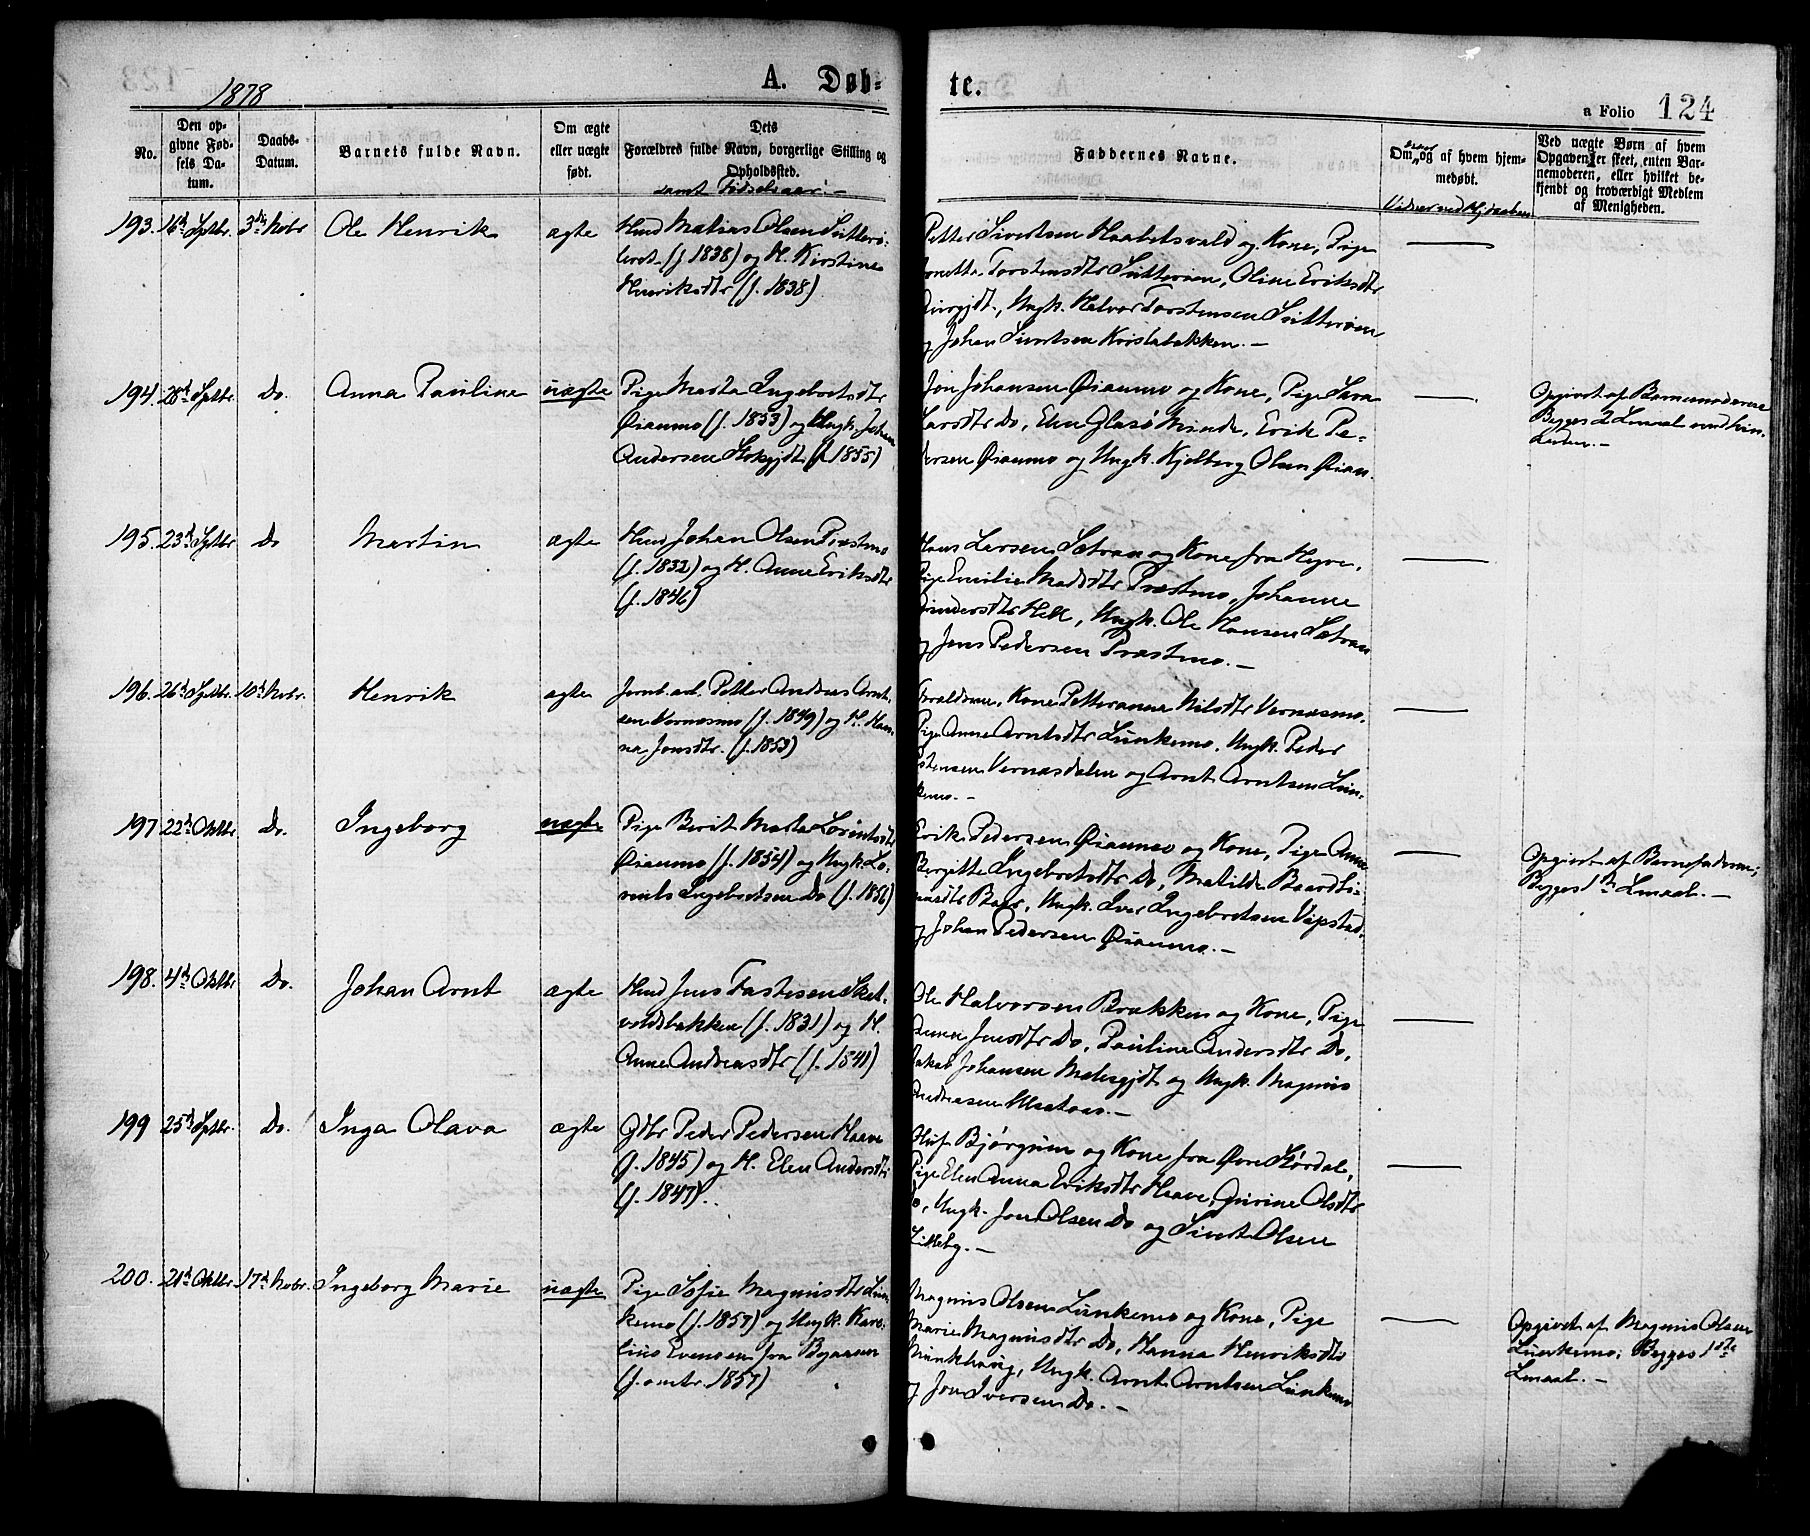 1878
A. Døb-
te.
a Folio 124
No.
Den op-
givne Fød-
sels Da-
tum.
Daabs-
Datum.
Barnets fulde Navn.
Om ægte
eller uægte
født.
Dets
Forældres fulde Navn, borgerlige Stilling og
Opholdssted.
samt Fødselsaar.-
Faddernes Navne.
Om og af hvem hjem-
medøbt.
Ved uægte Børn af hvem
Opgaven er skeet, enten Bar-
nemoderen, eller hvilket be-
kjendt og troværdigt Medlem
af Menigheden.
193. 16d Sptbr. 3die Novbr Ole Henrik ægte
Hmd Matias Olsen
(f. 1838) og H. Kirstine
Henriksdtr (f. 1838)
Petter Sivertsen Haabetsvald og Kone, Pige
Torstensdtr Sutterøen, Oline Eriksdtr
Ungk. Halvor Torstensen Sutterøen
og Johan Sivertsen
194. 28d Sptbr. Do. Anna Pauline uægte
Pige Marta Ingebretsdtr
Øianmo (f. 1853) og Ungk. Johan
Andersen (f. 1855)
Jon Johansen Øianmo og Kone, Pige Sara
Larsdtr Do, Elen Minde, Erik Pe-
dersen Øianmo og Ungk. Kjelberg Olsen Øian.
Opgivet af Barnemoderen
Begges 2 Lmaal
195. 23d Sptbr Do Martin ægte
Hmd Johan Olsen Præstmo
(f. 1832) og H. Anne Eriksdtr
(f. 1846)
Hans Larsen Sætran og Kone fra Hegre,
Pige Emilie Madsdtr Præstmo, Johanne
Hell, Ungk. Ole Hansen Sætran
og Jens Pedersen Præstmo.-
196. 26d Sptbr. 10d Novbr. Henrik ægte
Jernb. arb. Petter Andreas Arnt-
sen Vernæsmo (f. 1849) og H. Han-
na Jonsdtr. (f. 1853)
Forældrene, Kone Petteranna Nilsdtr Vernæsmo.
Pige Anne Arntsdtr Lunkemo. Ungk. Peder
Vernæsdalen og Arnt Arntsen Lun-
kemo.-
197 22d Oktbr. Do. Ingeborg uægte
Pige Berit Marta Lorentsdtr
Øianmo (f. 1854) og Ungk. Lo-
rents Ingebretsen Do (f. 1856)
Erik Pedersen Øianmo og Kone, Pige Anne
Bergitte Ingebretsdtr Do, Matilde
Ungk. Iver Ingebretsen Vikstad,
og Johan Pedersen Øianmo.-
Opgivet af Barnefaderen;
Begges 1ste Lmaal.-
198. 4d Oktbr. Do. Johan Arnt ægte
Hmd Jens Tastesen Sket-
voldsbakken (f. 1831) og H.
Anne Andreasdtr (f. 1841)
Ole Halvorsen Brækken og Kone, Pige
Anna Jensdtr Do, Pauline Andersdtr Do,
Jakob Johansen og Ungk. Magnus
Andreasen
199 25d Sptbr. Do. Inga Olava ægte
Gdbr Peder Pedersen Haave
(f. 1845) og H. Elen Andersdtr
(f. 1847).
Bjørgum og Kone fra Øvre Størdal,
Pige Elen Anna Eriksdtr Haave, Gurine Olsdtr
Do, Ungk. Jon Olsen Do og Sivert Olsen
Lilleby.-
200. 21d Oktbr. 17d Novbr. Ingeborg Marie uægte
Pige Sofie Magnusdtr Lun-
kemo (f. 1857) og Ungk. Kare-
lius Evensen fra Byaasen
(f. omtr. 1857)
Magnus Olsen Lunkemo og Kone, Pige
Marie Magnusdtr Do, Hanna Henriksdtr
Munkhaug, Ungk. Arnt Arntsen Lunkemo
og Jon Iversen Do.-
Opgivet af Magnus Olsen
Lunkemo; Begges 1ste
Lmaal.-